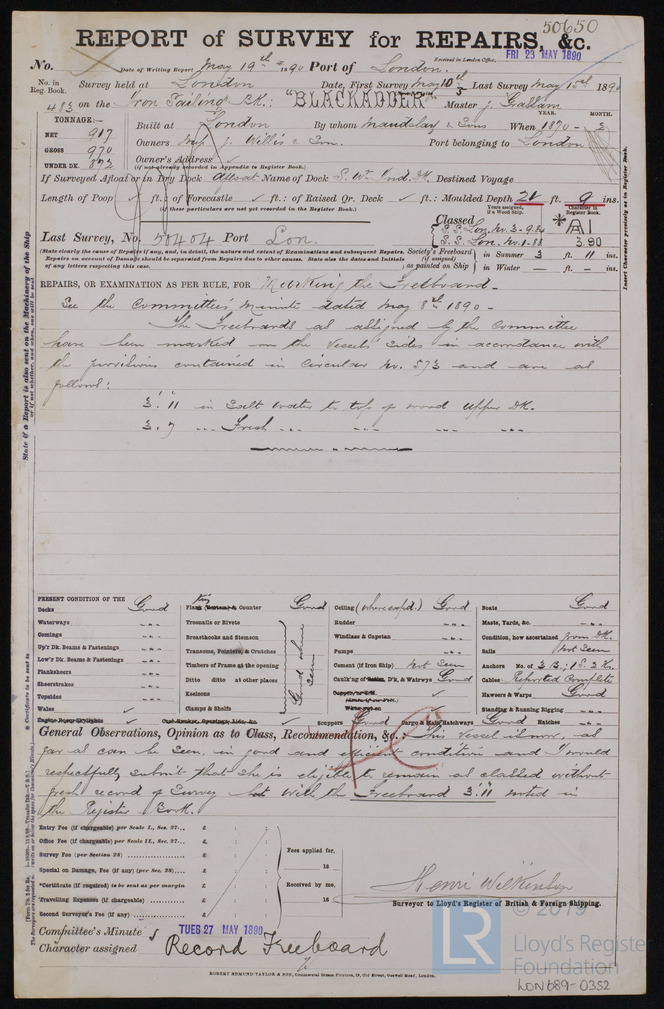 50650
REPORT of SURVEY for REPAIRS, &c.
Received in London Office,
FRI 23 MAY 1890
No. Date of Writing Report May 19th 1890 Port of London.
No. in Reg. Book. Survey held at London Date, First Survey May 10th Last Survey May 1890
483 on the Iron Sailing Bk.: "BLACKADDER" Master J. Gallam
TONNAGE:—
YEAR. MONTH.
NET 917 Built at London By whom Maudslay & Sons When 1870 - 2
GROSS 970 Owners J. Willis & Son. Port belonging to London
UNDER DK. 872 Owner's Address
(if not already recorded in Appendix to Register Book.)
If Surveyed Afloat or in Dry Dock Afloat Name of Dock S. W. Ind. Dk Destined Voyage
Length of Poop ft.: of Forecastle ft.: of Raised Qr. Deck ft.: Moulded Depth 20 ft. 9 ins:
(if these particulars are not yet recorded in the Register Book.)
Years assigned, if a Wood Ship.
Character in Register Book.
Classed
S.S. Lon. No. 3 - 9.82
A1
Last Survey, No. 50404 Port Lon.
S.S. Lon. No. 1 - 88
3.90
(State clearly the cause of Repairs if any, and, in detail, the nature and extent of Examinations and subsequent Repairs.
Repairs on account of Damage should be separated from Repairs due to other causes. State also the dates and Initials
of any letters respecting this case.
Society's Freeboard (if assigned) as painted on Ship
in Summer 3 ft. 11 ins.
in Winter — ft. — ins.
REPAIRS, OR EXAMINATION AS PER RULE, FOR Marking the Freeboard.
See the Committee's Minute dated May 8th 1890 -
The Freeboards as assigned by the Committee
have been marked on the vessel's sides in accordance with
the provisions contained in Circular No. 573 and are as
follows:
3'. 11" in Salt water to top of wood upper Dk.
3. 7 ... Fresh ...
PRESENT CONDITION OF THE
Decks Good
Waterways
Comings
Up'r Dk. Beams & Fastenings
Low'r Dk. Beams & Fastenings
Planksheers
Sheerstrakes
Topsides
Wales
Counter Good
Treenails or Rivets
Breasthooks and Stemson
Transoms, Pointers & Crutches
Timbers of Frame at the opening
Ditto ditto at other places
Keelsons
Clamps & Shelfs
Good where seen
Ceiling (where exp'd.) Good
Rudder
Windlass & Capstan
Pumps
Cement (if Iron Ship) Not Seen
Caulk'ng of D'k, & Waterwys Good
Scuppers Good Cargo & Main Hatchways Good Hatches
Boats Good
Masts, Yards, &c.
Condition, how ascertained from Dk.
Sails Not Seen
Anchors No. of 3 B; 1 S. 2 Ks.
Cables Reported Complete
Hawsers & Warps Good
Standing & Running Rigging
General Observations, Opinion as to Class, Recommendation, &c.: This vessel is now, as
far as can be seen, in good and efficient condition and I would
respectfully submit that she is eligible to remain as classed without
fresh record of Survey but with the Freeboard 3'.11" noted in
the Register Book.
Entry Fee (if chargeable) per Scale I., Sec. 27... £
Office Fee (if chargeable) per Scale II., Sec. 27... £
Survey Fee (per Section 28) £
Special on Damage, Fee (if any) (per Sec. 28) £
*Certificate (if required) to be sent as per margin £
Travelling Expenses (if chargeable) £
Second Surveyor's Fee (if any) £
Fees applied for,
18
Received by me,
18
Henri Wilkinson
Surveyor to Lloyd's Register of British & Foreign Shipping.
Committee's Minute TUES 27 MAY 1890
Character assigned Record Freeboard
ROBERT EDMUND TAYLOR & SON, Commercial Steam Printers, 19, Old Street, Goswell Road, London.
State if a Report is also sent on the Machinery of the Ship
Insert Character precisely as in Register Book.
LR
© 2019
Lloyd's Register
Foundation
LON689-0352